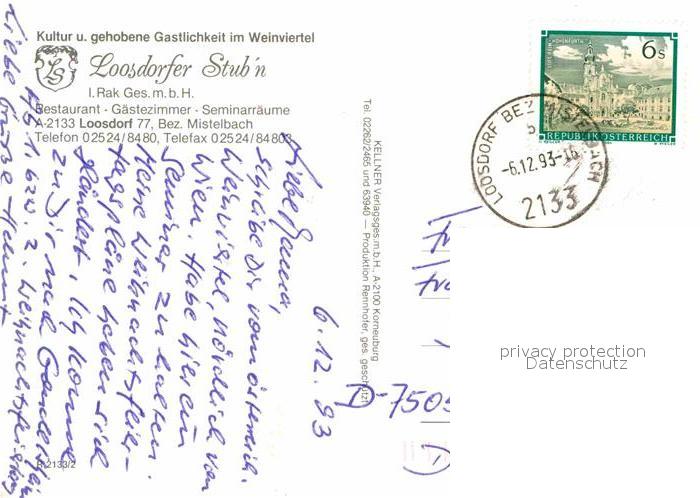 Kultur u. gehobene Gastlichkeit im Weinviertel
LS
Loosdorfer Stub'n
I. Rak Ges.m.b.H.
Restaurant · Gästezimmer · Seminarräume
A-2133 Loosdorf 77, Bez. Mistelbach
Telefon 02524/8480, Telefax 02524/84803
6.12.93
Liebe
schreibe Dir vom österreich.
Weinviertel, nördlich von
Wien. Habe hier ein
Seminar zu halten.
Meine Weihnachtsfeier-
tagspläne haben sich
geändert. Ich komme
zu Dir nach
Liebe Grüße Helmut
R 2133/2
KELLNER Verlagsges.m.b.H., A-2100 Korneuburg
Tel. 02262/2465 und 63940 — Produktion Rennhofer, ges. geschützt
6 S
STIFT REIN-HOHENFURTH
REPUBLIK ÖSTERREICH
LOOSDORF BEZ MISTELBACH
-6.12.93-16
2133
D-7505
privacy protection
Datenschutz